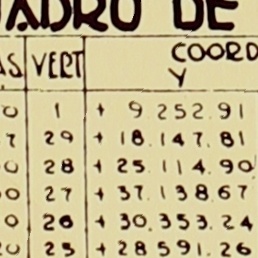 UADRO DE
AS VERT COORD
Y
0 1 + 9 252.91
7 29 + 18.147.81
0 28 + 25.114.90
0 27 + 37.138.67
0 26 + 30.353.24
0 25 + 28 591.26